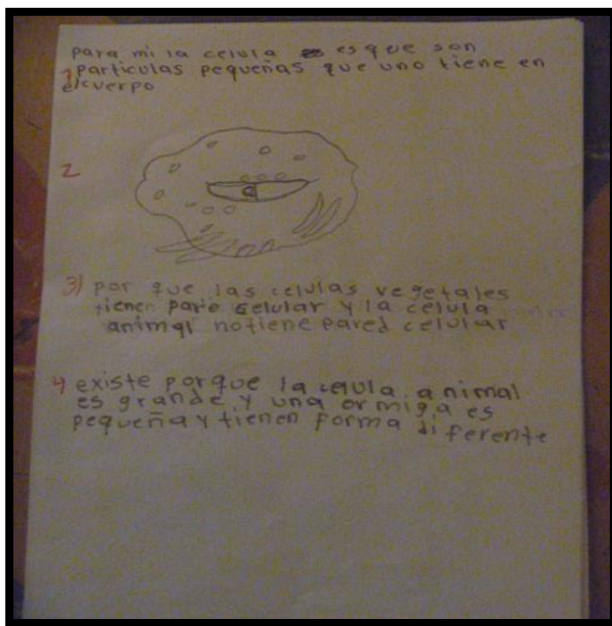 para mi la celula es que son
1 particulas pequeñas que uno tiene en
el cuerpo
2
3) por que las celulas vegetales
tienen pare selular y la celula
animal no tiene pared celular
4 existe porque la celula animal
es grande y una ormiga es
pequeña y tienen forma diferente